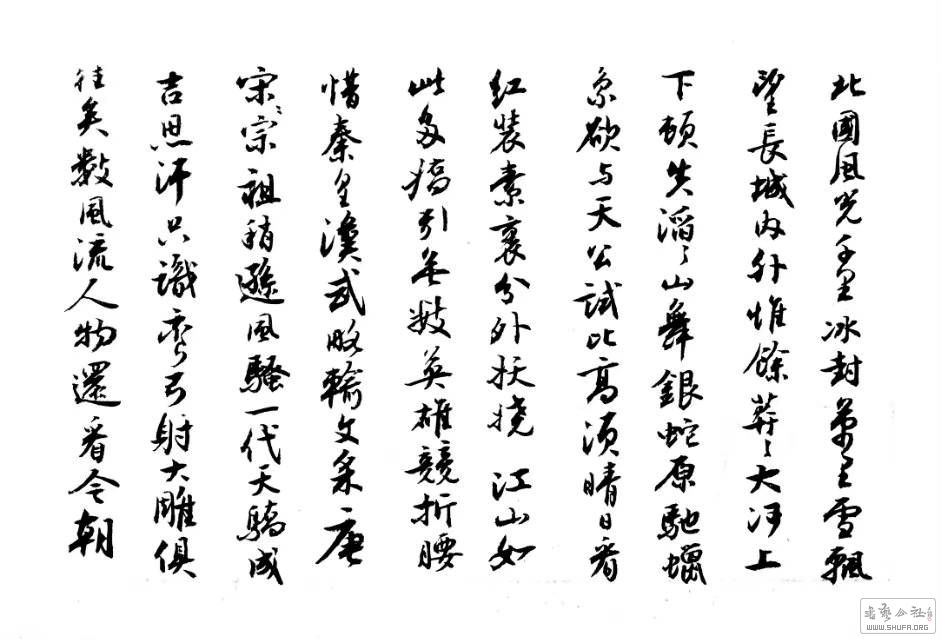 北國風光千里冰封萬里雪飄
望長城内外惟餘莽〻大河上
下頓失滔〻山舞銀蛇原馳蠟
象欲与天公試比高須晴日看
紅裝素裹分外妖嬈 江山如
此多嬌引無數英雄競折腰
惜秦皇漢武略輸文采唐
宋〻宗祖稍遜風騷一代天驕成
吉思汗只識彎弓射大雕俱
往矣數風流人物還看今朝
書藝公社
WWW.SHUFA.ORG